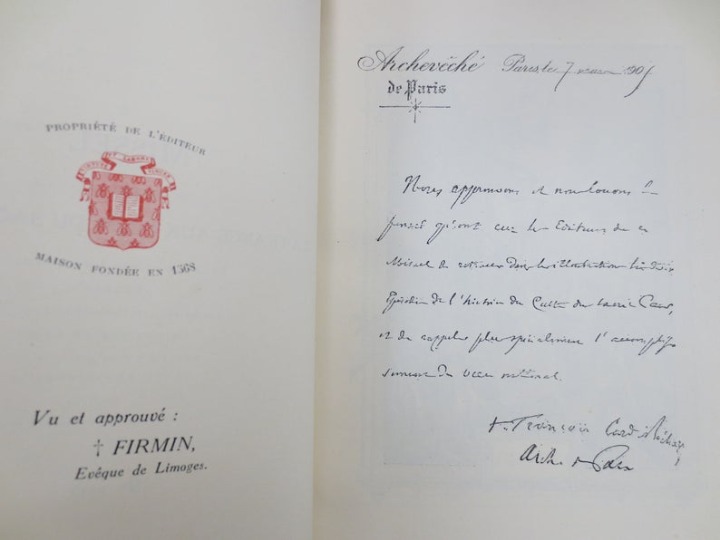 PROPRIÉTÉ DE L'ÉDITEUR
MAISON FONDÉE EN 1568
Vu et approuvé :
† FIRMIN,
Evêque de Limoges.
Archevêché
de Paris
Paris le 7
Nous approuvons et nous louons la
pensée qu'ont eue les Editeurs de ce
Missel de retracer dans les illustrations
de l'histoire du Culte du Sacré Cœur,
et de rappeler plus spécialement l'accomplis
sement du vœu national.
† François Card. Richard,
Arch. de Paris